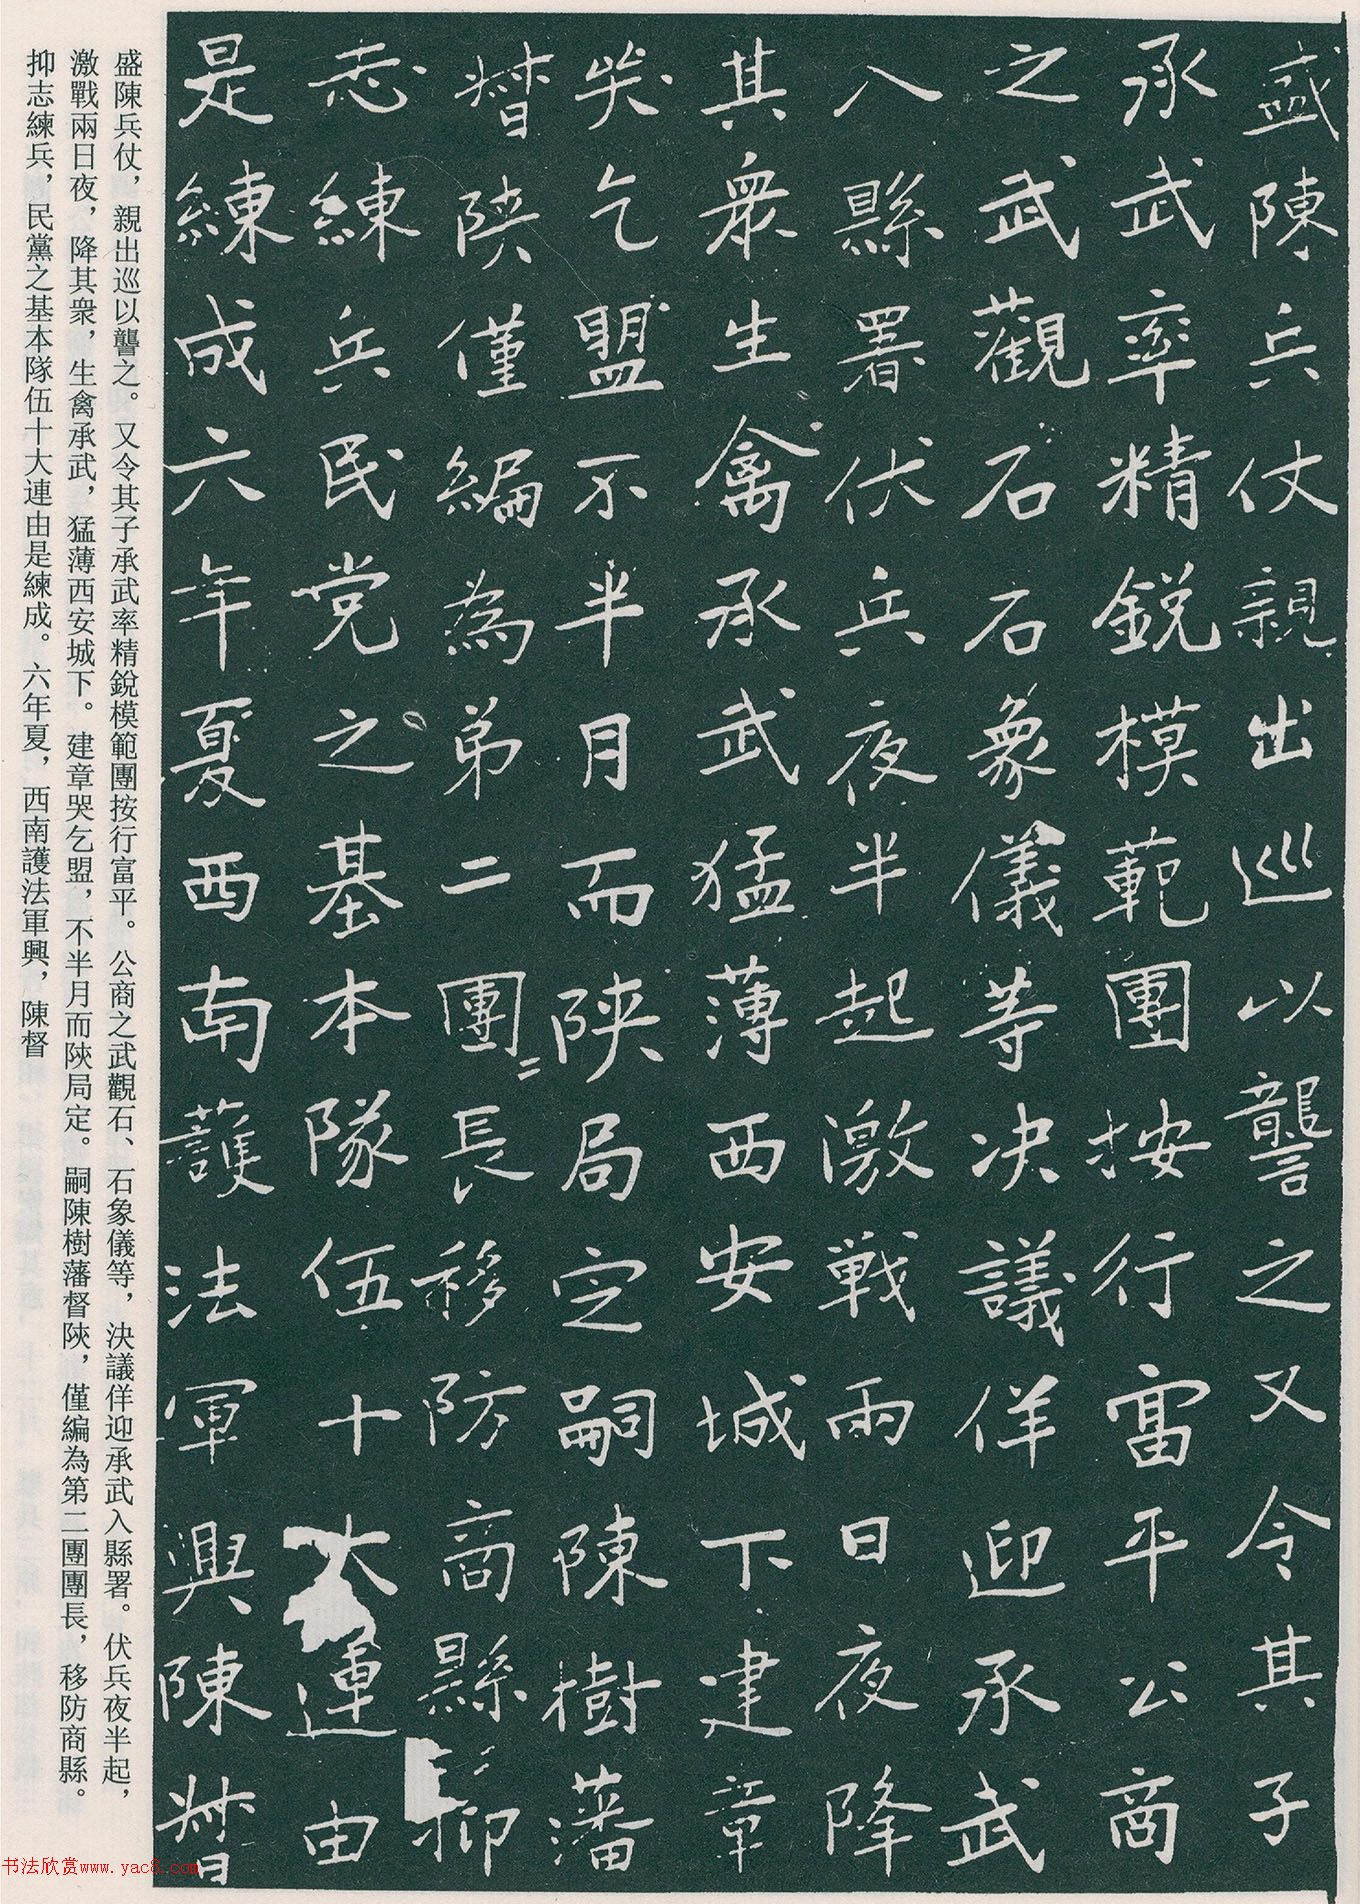 盛陳兵仗親出巡以讋之又令其子
承武率精銳模範團按行富平公商
之武觀石石象儀等決議佯迎承武
入縣署伏兵夜半起激戰兩日夜降
其衆生禽承武猛薄西安城下建章
哭乞盟不半月而陝局定嗣陳樹藩
督陝僅編為弟二團〻長移防商縣抑
志練兵民党之基本隊伍十大連由
是練成六年夏西南護法軍興陳督
盛陳兵仗，親出巡以讋之。又令其子承武率精銳模範團按行富平。公商之武觀石、石象儀等，決議佯迎承武入縣署。伏兵夜半起，
激戰兩日夜，降其衆，生禽承武，猛薄西安城下。建章哭乞盟，不半月而陝局定。嗣陳樹藩督陝，僅編為第二團團長，移防商縣。
抑志練兵，民黨之基本隊伍十大連由是練成。六年夏，西南護法軍興，陳督
书法欣赏www.yac8.com